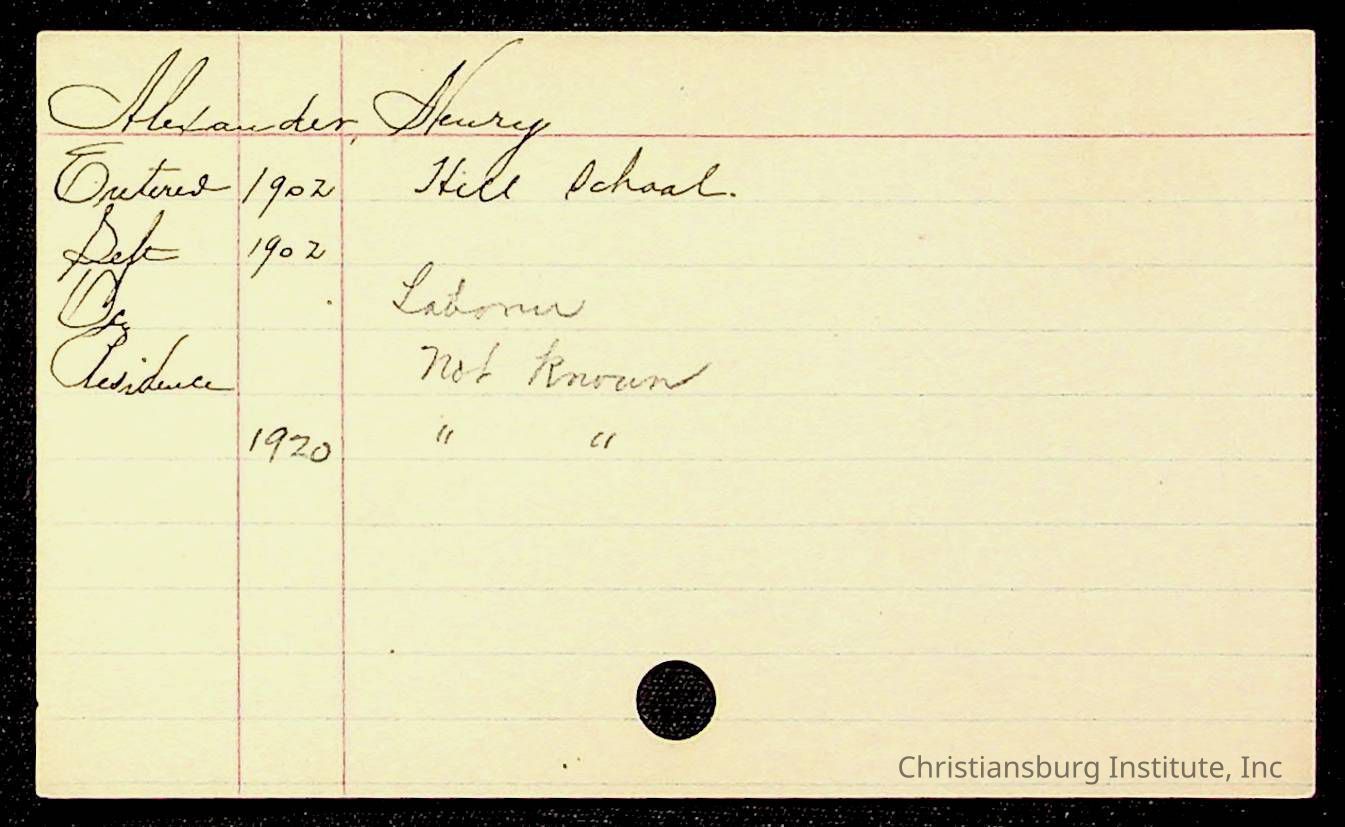 Alexander, Henry
Entered 1902 Hill School.
Left 1902
Oc. Laborer
Residence Not Known
1920 " "
Christiansburg Institute, Inc